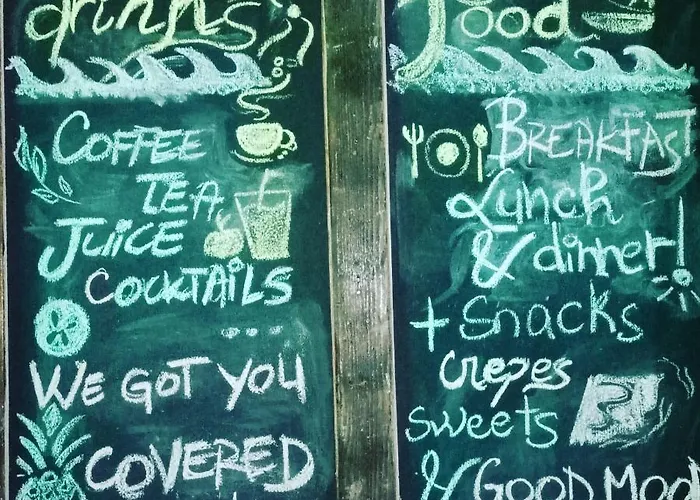 drinks
COFFEE
TEA
JUICE
COCKTAILS
...
WE GOT YOU
COVERED
food
BREAKFAST
Lunch
& dinner!
+ Snacks
crepes
sweets
& GOOD MOO